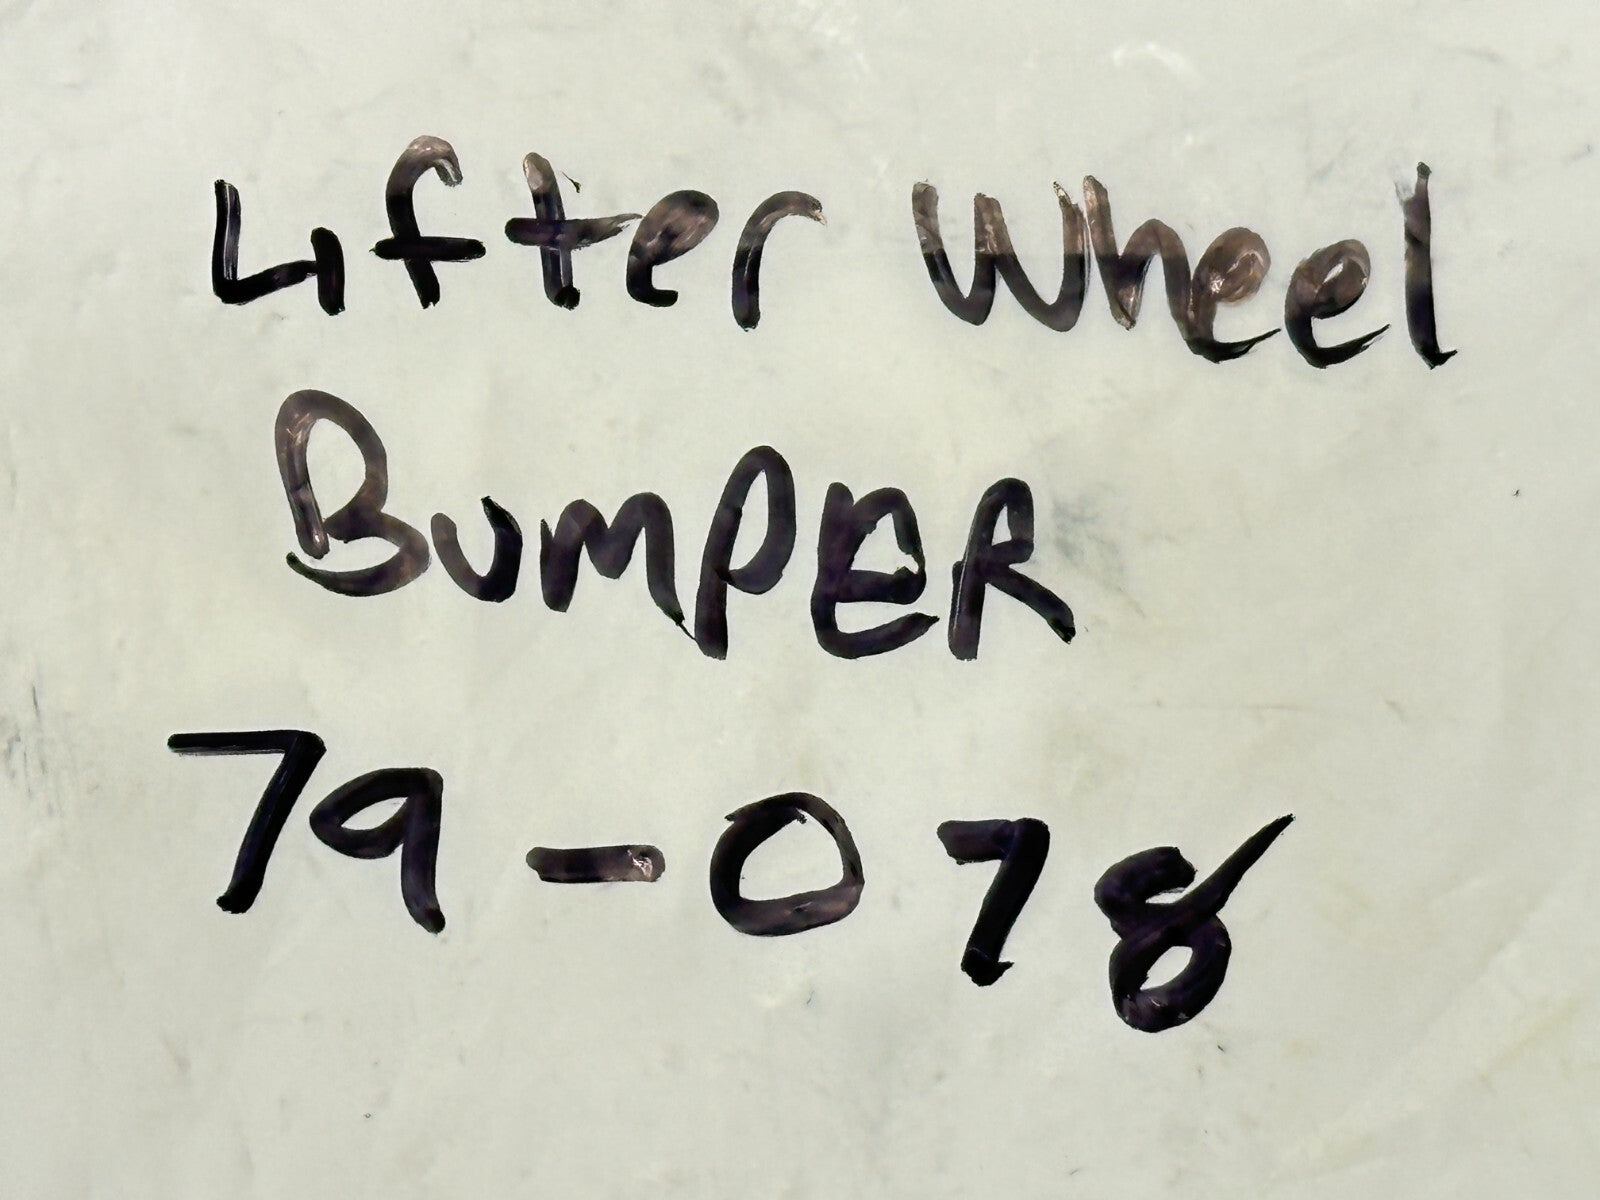 Lifter Wheel
BumPER
79-078